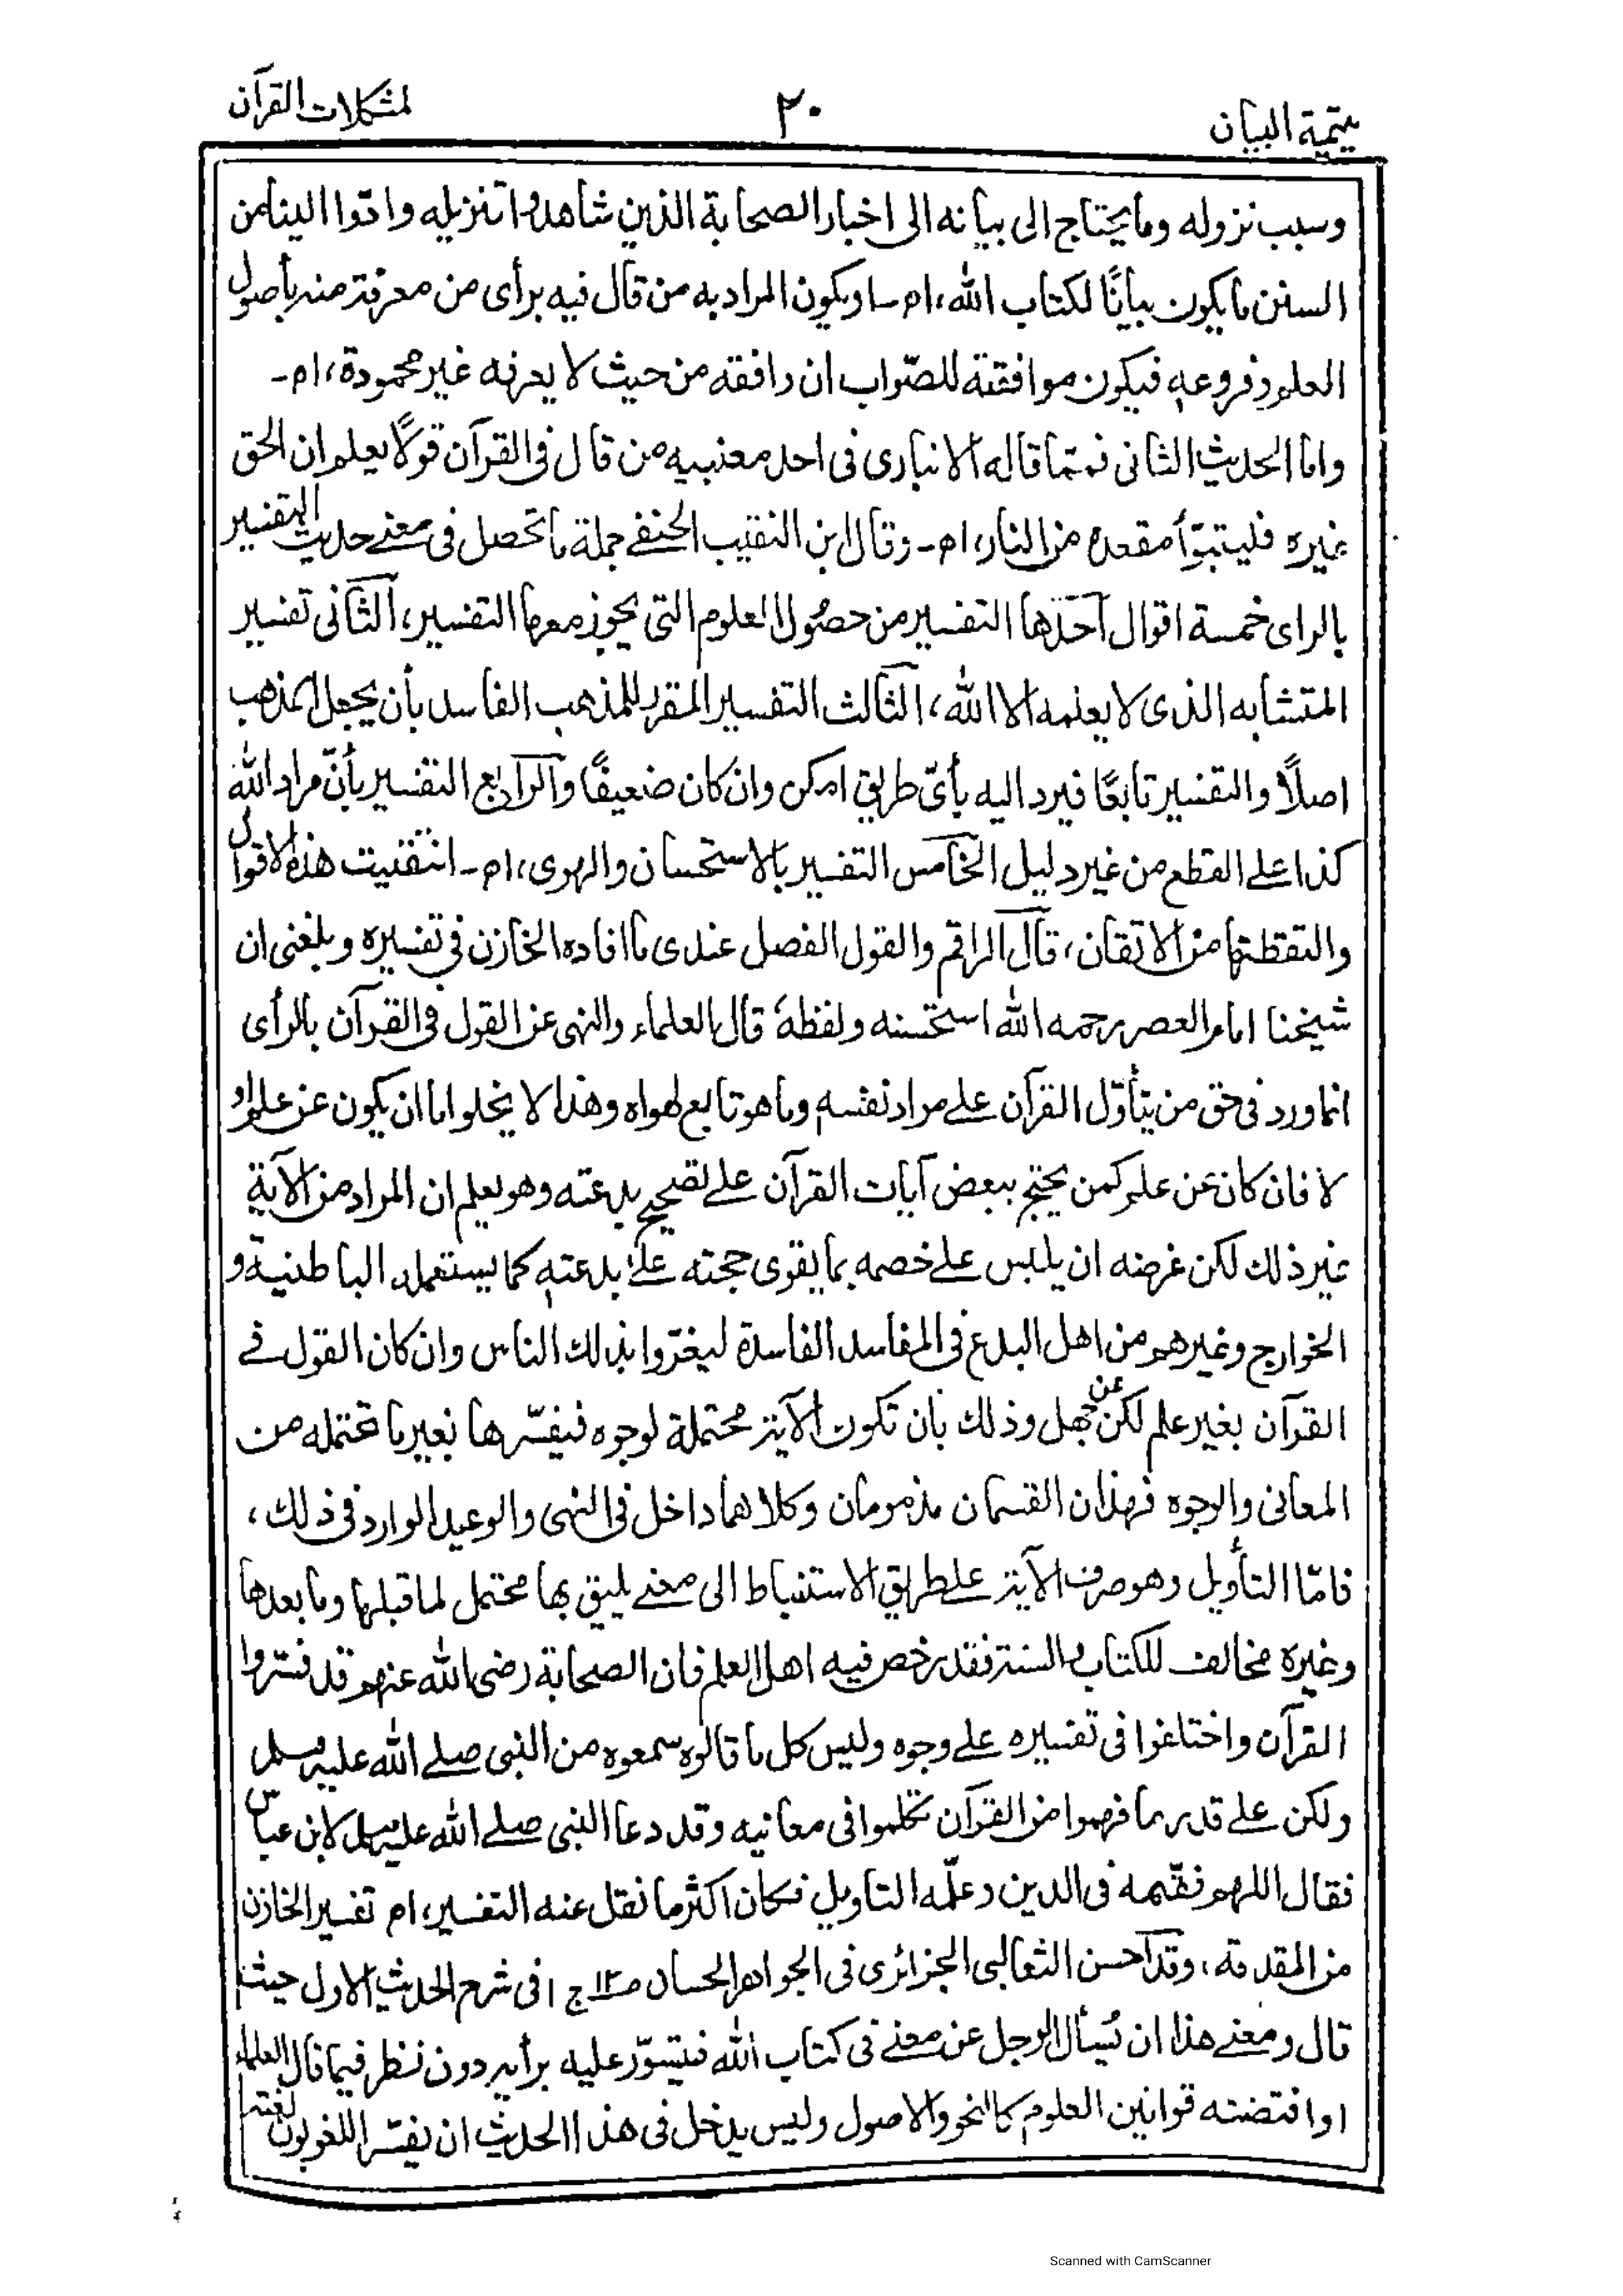 يتيمة البيان ٢٠ لمشكلات القرآن
وسبب نزوله وما يحتاج الى بيانه الى اخبار الصحابة الذين شاهدوا تنزيله وادّوا الينا من
السنن ما يكون بيانًا لكتاب الله، اھ ــ او يكون المراد به من قال فيه برأى من معرفة منه بأصول
العلم وفروعه فيكون موافقته للصّواب ان وافقه من حيث لا يعرفه غير محمودة، اھ ــ
واما الحديث الثانى فمتما قاله الانبارى فى احد معنييه من قال فى القرآن قولًا يعلم ان الحق
غيره فليتبوّأ مقعده من النار، اھ ــ وقال ابن النقيب الحنفے جملة ما تحصل فى معنے حديث التفسير
بالراى خمسة اقوال آحدها التفسير من حصول العلوم التى يجوز معها التفسير، الثانى تفسير
المتشابه الذى لا يعلمه الا الله، الثالث التفسير المقرر للمذهب الفاسد بأن يجعل المذهب
اصلاً والتفسير تابعًا فيرد اليه بأىّ طريق امكن وان كان ضعيفًا والرابع التفسير بأنّ مراد الله
كذا علے القطع من غير دليل الخامس التفسير بالاستحسان والهوى، اھ ــ انتقيت هذه الاقوال
والتقطتها من الاتقان، قال الراقم والقول الفصل عندى ما افاده الخازن فى تفسيره وبلغنى ان
شيخنا امام العصر رحمه الله استحسنه ولفظهٗ قال العلماء والنهى عن القول فى القرآن بالرأى
انما ورد فى حق من يتأوّل القرآن علے مراد نفسه وما هو تابع لهواه وهذا لا يخلو اما ان يكون عن علم او
لا فان كان عن علم كمن يحتج ببعض آيات القرآن علے تصحيح بدعته وهو يعلم ان المراد من الآية
غير ذلك لكن غرضه ان يلبس علے خصمه بما يقوى حجته علے بدعته كما يستعمله الباطنية و
الخوارج وغيرهم من اهل البدع فى المقاسد الفاسدة ليغرّوا بذلك الناس وان كان القول فے
القرآن بغير علم لكن عن جهل وذلك بان تكون الآية محتملة لوجوه فيفسّرها بغير ما تحتمله من
المعانى والوجوه فهذان القسمان مذمومان وكلاهما داخل فى النهى والوعيد الوارد فى ذلك،
فامّا التأويل وهو صرف الآية علے طريق الاستنباط الى معنے يليق بها محتمل لما قبلها وما بعدها
وغيره مخالف للكتاب والسنة فقد رخص فيه اهل العلم فان الصحابة رضى الله عنهم قد فسّروا
القرآن واختلفوا فى تفسيره علے وجوه وليس كل ما قالوه سمعوه من النبى صلے الله عليه وسلم
ولكن علے قدر ما فهموا من القرآن تكلموا فى معانيه وقد دعا النبى صلے الله عليه وسلم لابن عباس
فقال اللهم فقّهه فى الدين وعلّمه التاويل فكان اكثر ما نقل عنه التفسير، اھ تفسير الخازن
من المقدمة، وقد آحسن الثعالبى الجزائرى فى الجواهر الحسان صـ١٢ ج ١ فى شرح الحديث الاول حيث
قال ومعنے هذا ان يُسأل الرجل عن معنے فى كتاب الله فيتسوّر عليه برأيه دون نظر فيما قال العلماء
او اقتضته قوانين العلوم كالنحو والاصول وليس يدخل فى هذا الحديث ان يفسّر اللغويون لغته
Scanned with CamScanner